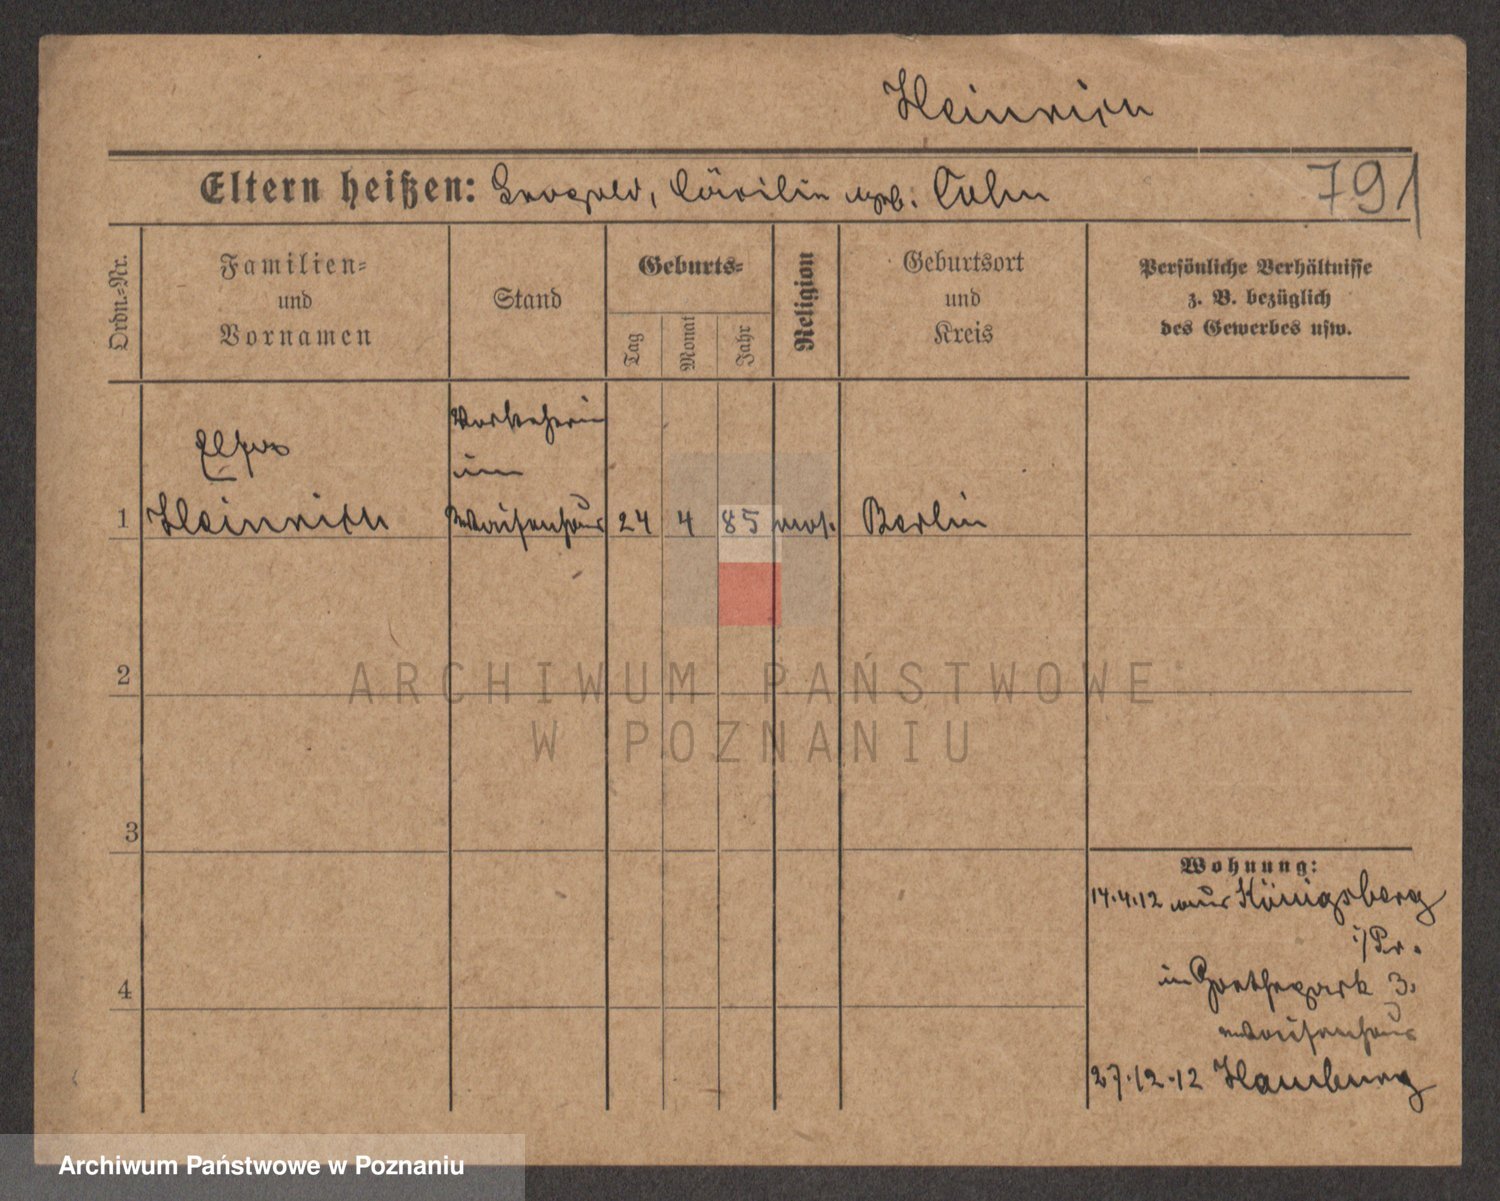 Heinrich
Eltern heißen: Leopold, Cäcilie geb: Cohn
791
Ordn.-Nr.
Familien-
und
Vornamen
Stand
Geburts-
Tag
Monat
Jahr
Religion
Geburtsort
und
Kreis
Persönliche Verhältnisse
z. B. bezüglich
des Gewerbes usw.
1
Heinrich
Vorsteherin
im
Waisenhaus
24
4
85
mos.
Berlin
2
3
4
Wohnung:
14.4.12 aus Königsberg
i/Pr.
in Goethepark 3.
Waisenhaus
27.12.12 Hamburg
ARCHIWUM PAŃSTWOWE
W POZNANIU
Archiwum Państwowe w Poznaniu